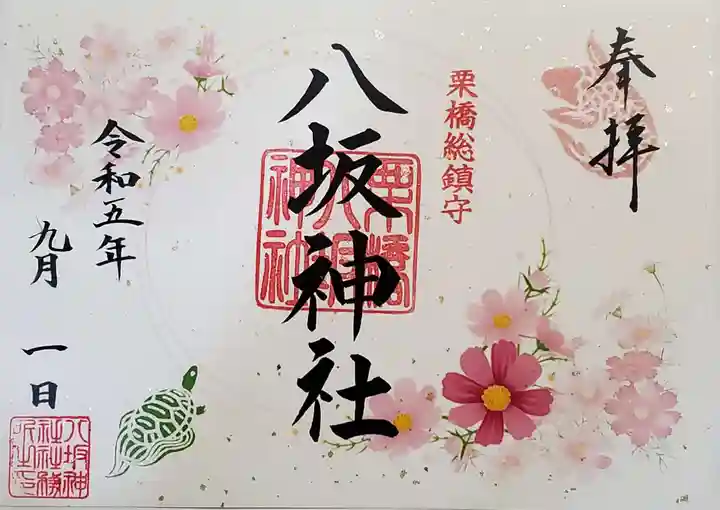 奉拝
栗橋総鎮守
八坂神社
栗橋
八坂
神社
令和五年
九月 一日
八坂神
社社務
所之印